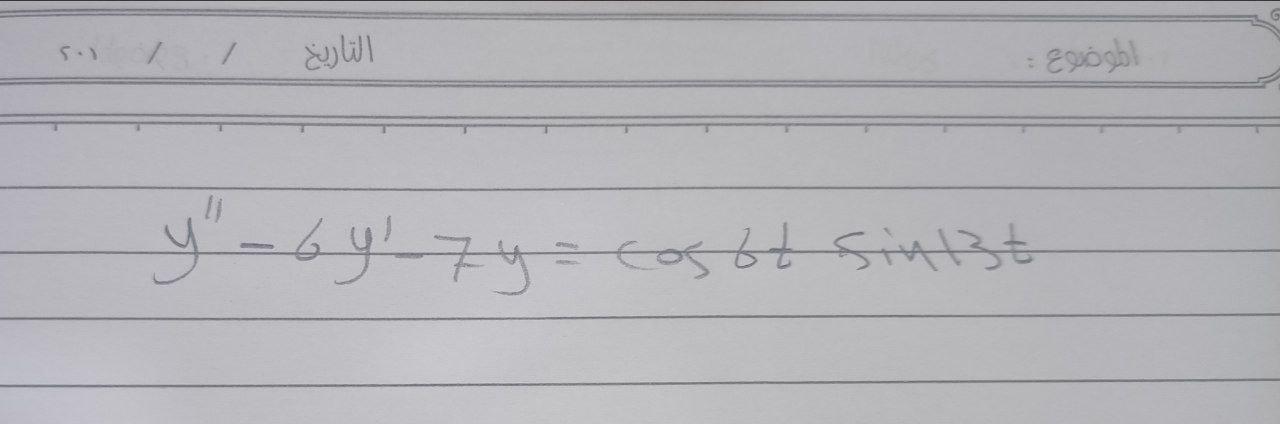 الموضوع : التاريخ / / ٢٠١
y'' - 6y' - 7y = cos 6t sin 13t